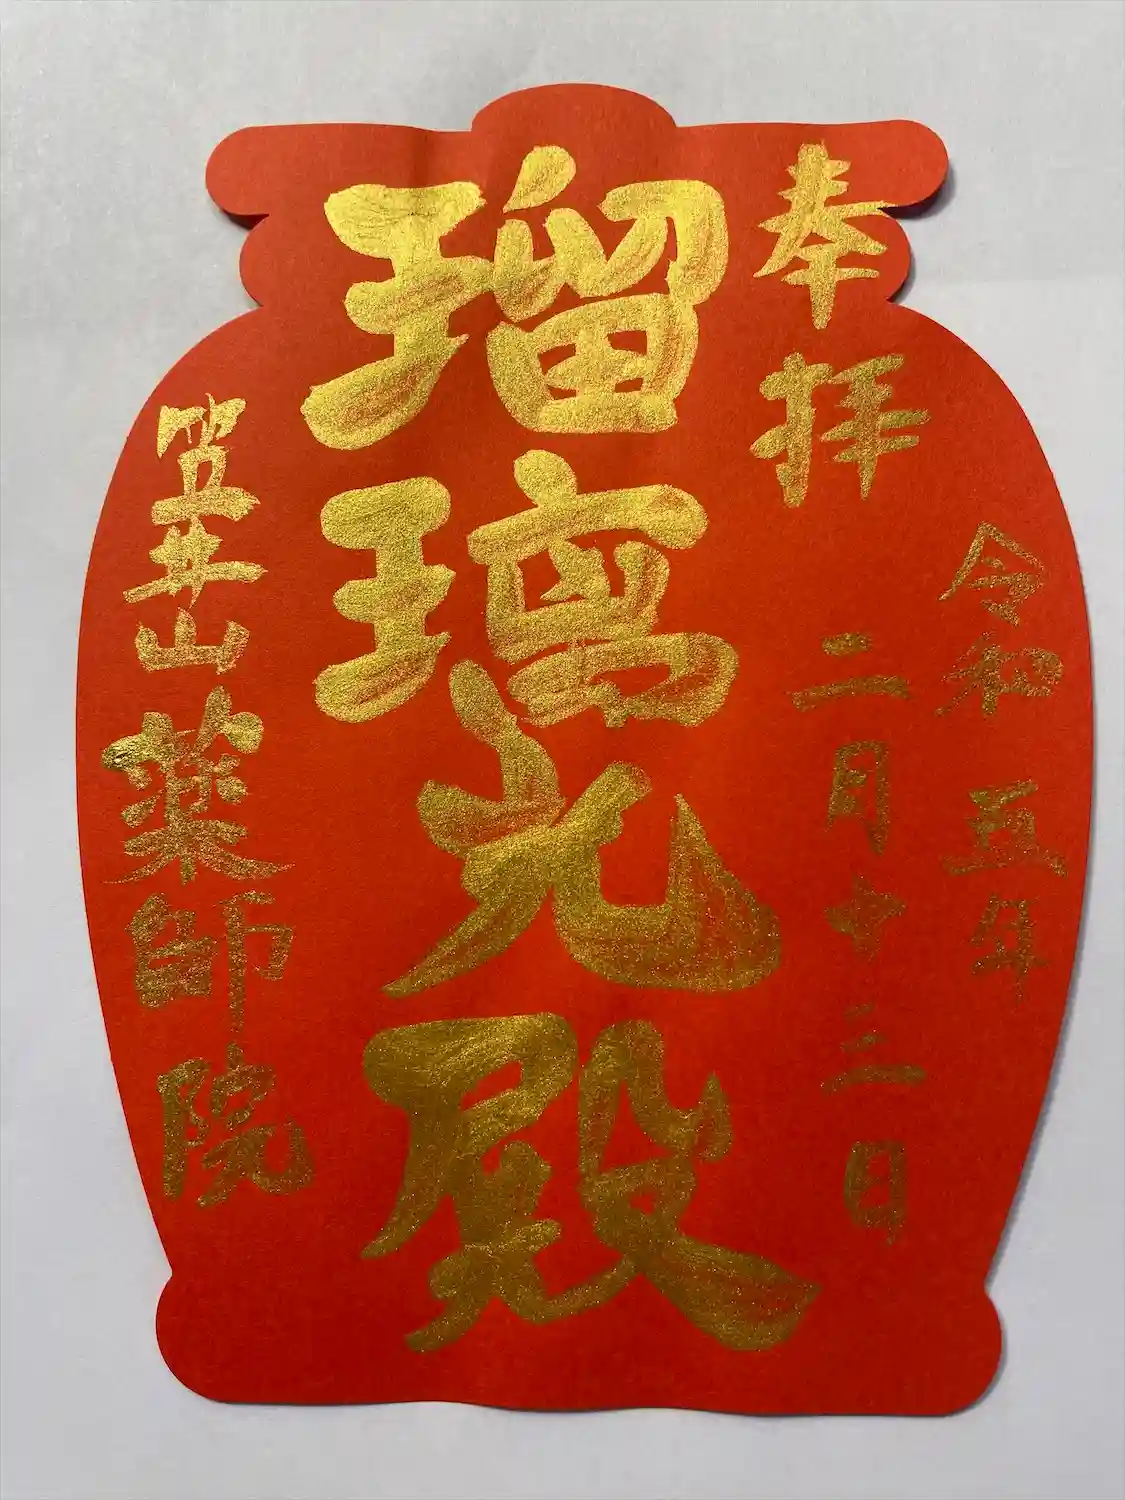 奉拝
令和五年
二月十三日
瑠璃光殿
笠井山薬師院